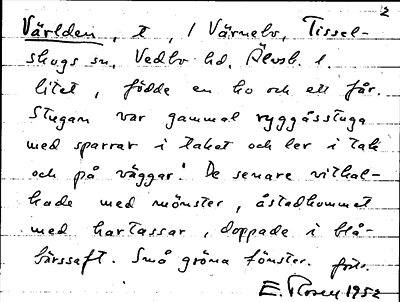 2
Världen, t, / Värnebo, Tissel-
skogs sn, Vedbo hd, Älvsb. l.
litet, födde en ko och ett får.
Stugan var gammal ryggåsstuga
med sparrar i taket och ler i tak
och på väggar. De senare vitkal-
kade med mönster, åstadkommet
med hartassar, doppade i blå-
bärssaft. Små gröna fönster. forts.
E. Rosen 1952